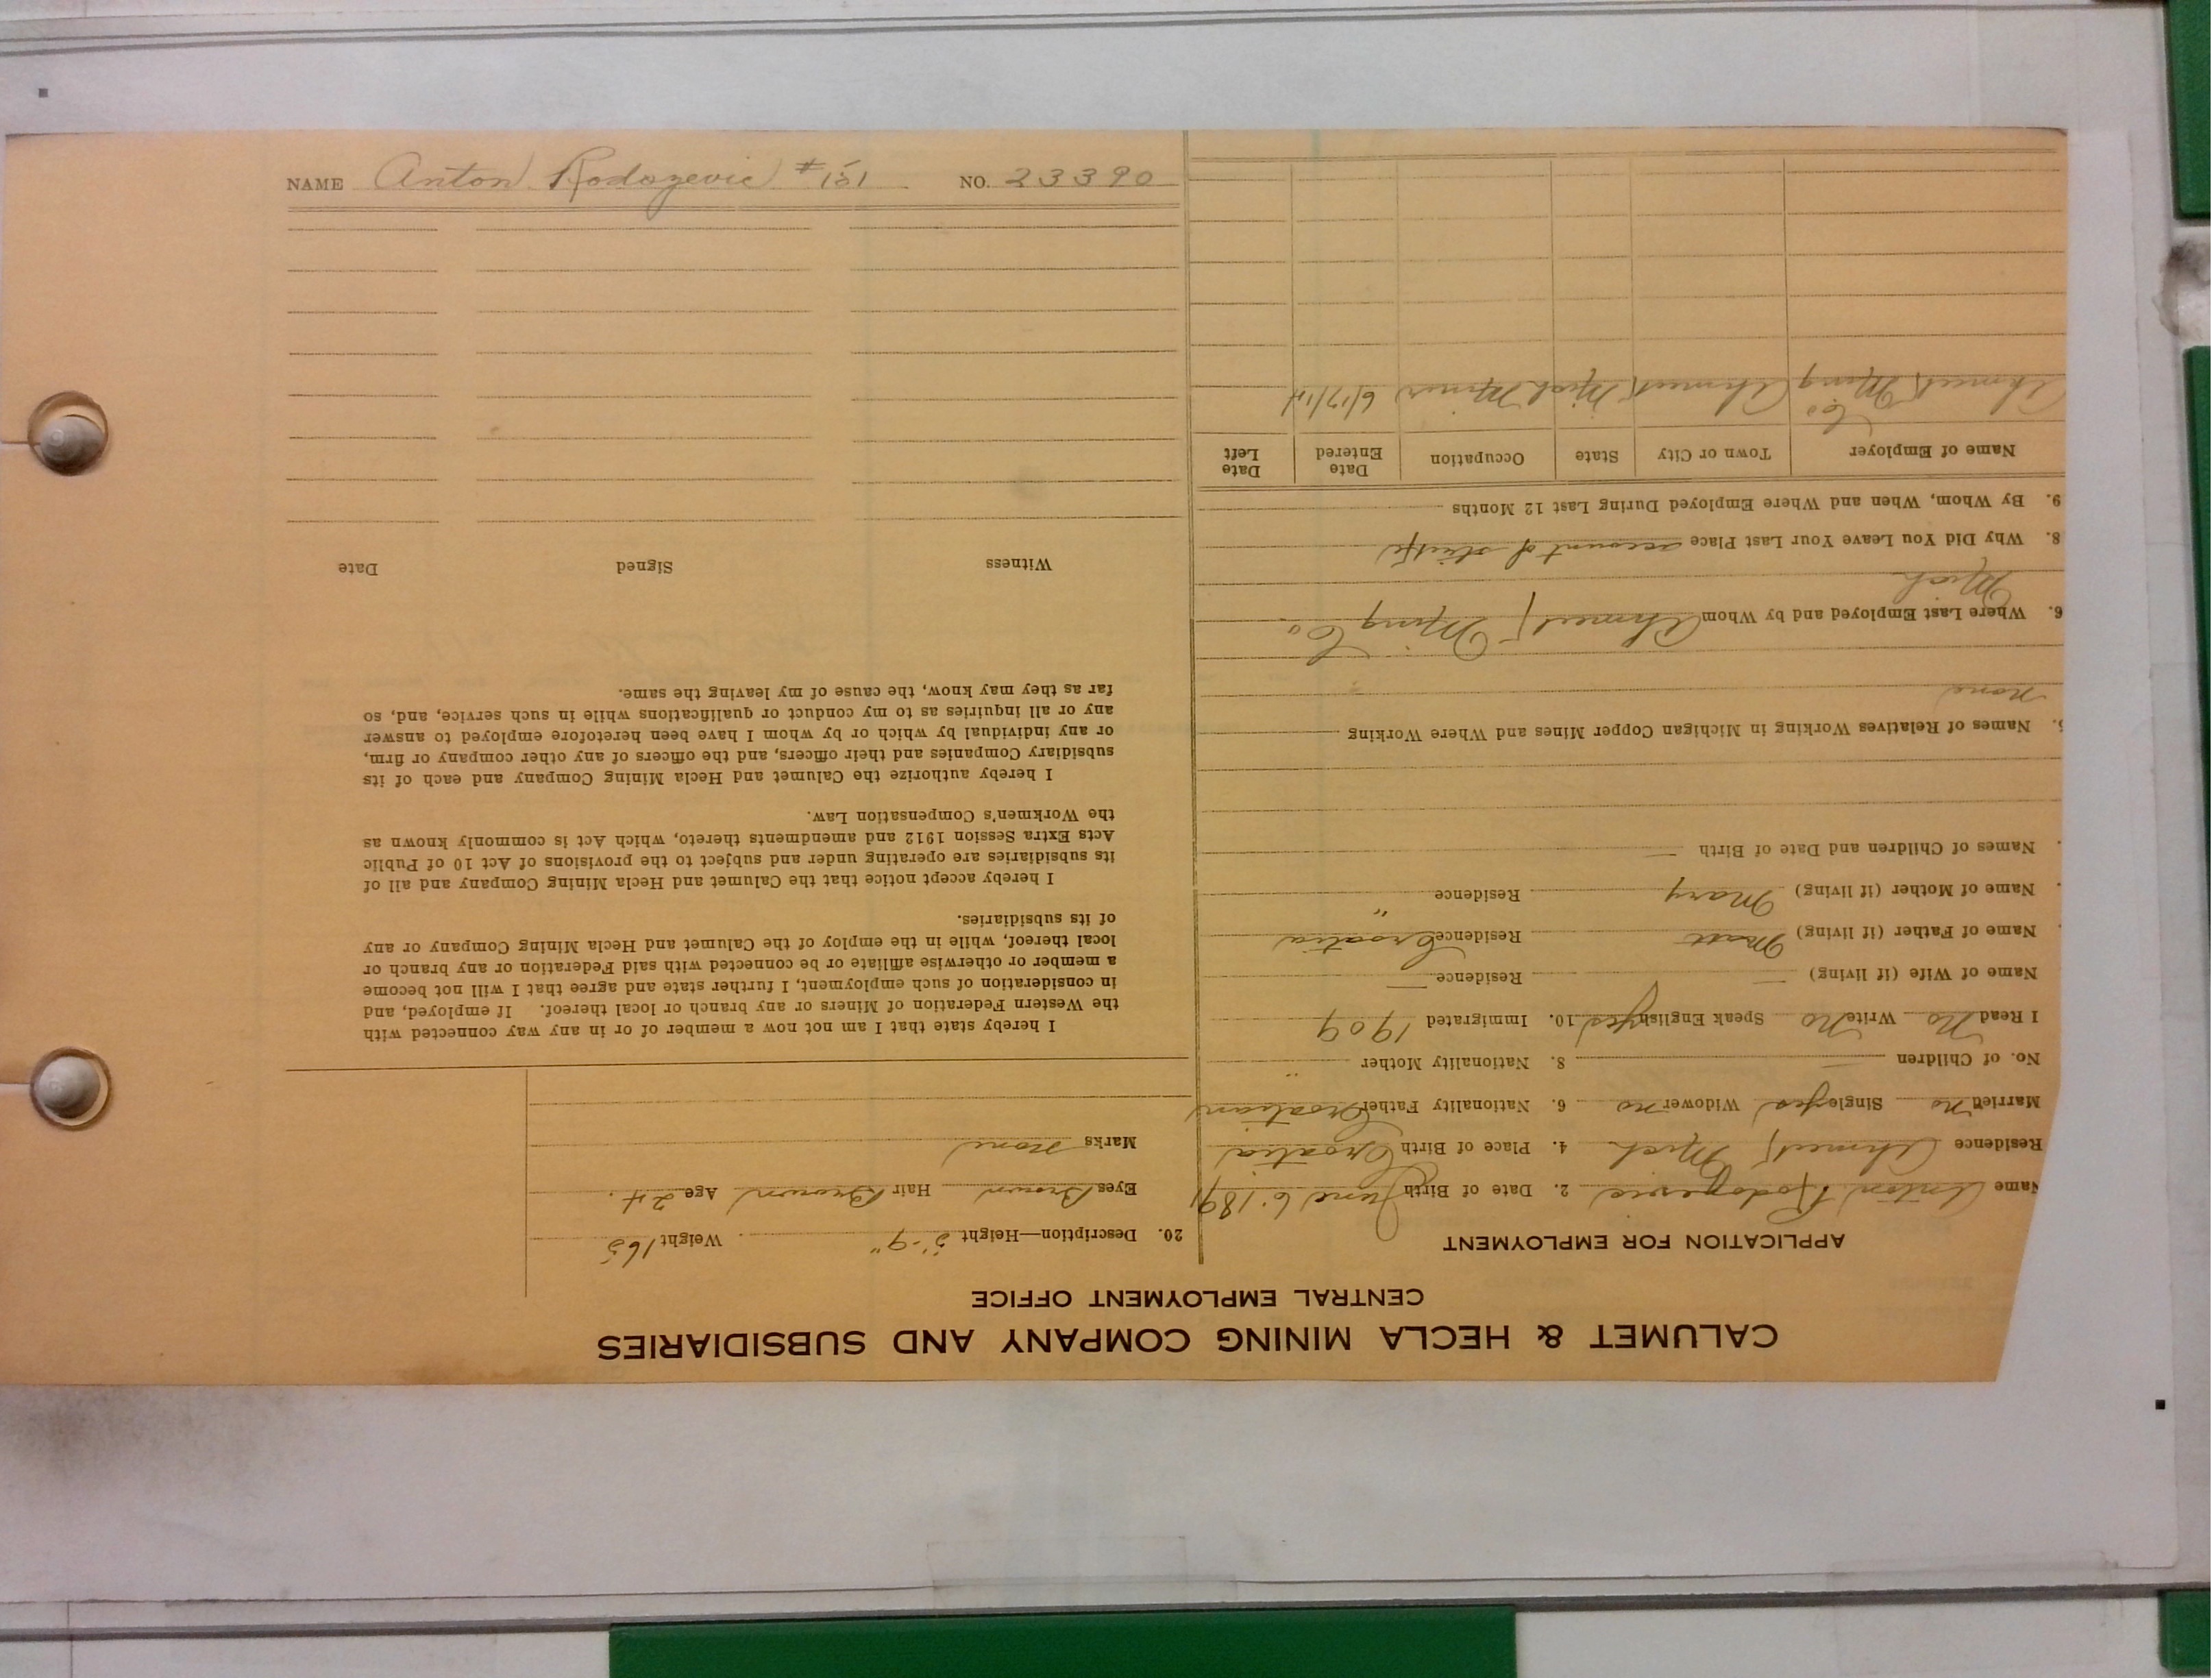 CALUMET & HECLA MINING COMPANY AND SUBSIDIARIES
CENTRAL EMPLOYMENT OFFICE
APPLICATION FOR EMPLOYMENT
Name Anton Rodozevic 2. Date of Birth June 6. 1891
Residence Ahmeek Mich 4. Place of Birth Croatia
Married no Single yes Widower no 6. Nationality Father Croatian
No. of Children — 8. Nationality Mother "
I Read No Write No Speak English yes 10. Immigrated 1909
Name of Wife (if living) — Residence —
Name of Father (if living) Matt Residence Croatia
Name of Mother (if living) Mary Residence "
Names of Children and Date of Birth —
5. Names of Relatives Working in Michigan Copper Mines and Where Working
none
6. Where Last Employed and by Whom Ahmeek Mining Co
Mich
8. Why Did You Leave Your Last Place account of strike
9. By Whom, When and Where Employed During Last 12 Months
Name of Employer Town or City State Occupation Date Entered Date Left
Ahmeek Mining Co Ahmeek Mich Miner 6/17/14
20. Description—Height 5'-9" Weight 165
Eyes Brown Hair Brown Age 24.
Marks none
I hereby state that I am not now a member of or in any way connected with
the Western Federation of Miners or any branch or local thereof. If employed, and
in consideration of such employment, I further state and agree that I will not become
a member or otherwise affiliate or be connected with said Federation or any branch or
local thereof, while in the employ of the Calumet and Hecla Mining Company or any
of its subsidiaries.
I hereby accept notice that the Calumet and Hecla Mining Company and all of
its subsidiaries are operating under and subject to the provisions of Act 10 of Public
Acts Extra Session 1912 and amendments thereto, which Act is commonly known as
the Workmen's Compensation Law.
I hereby authorize the Calumet and Hecla Mining Company and each of its
subsidiary Companies and their officers, and the officers of any other company or firm,
or any individual by which or by whom I have been heretofore employed to answer
any or all inquiries as to my conduct or qualifications while in such service, and, so
far as they may know, the cause of my leaving the same.
Witness Signed Date
NAME Anton Rodozevic #151 NO. 23390